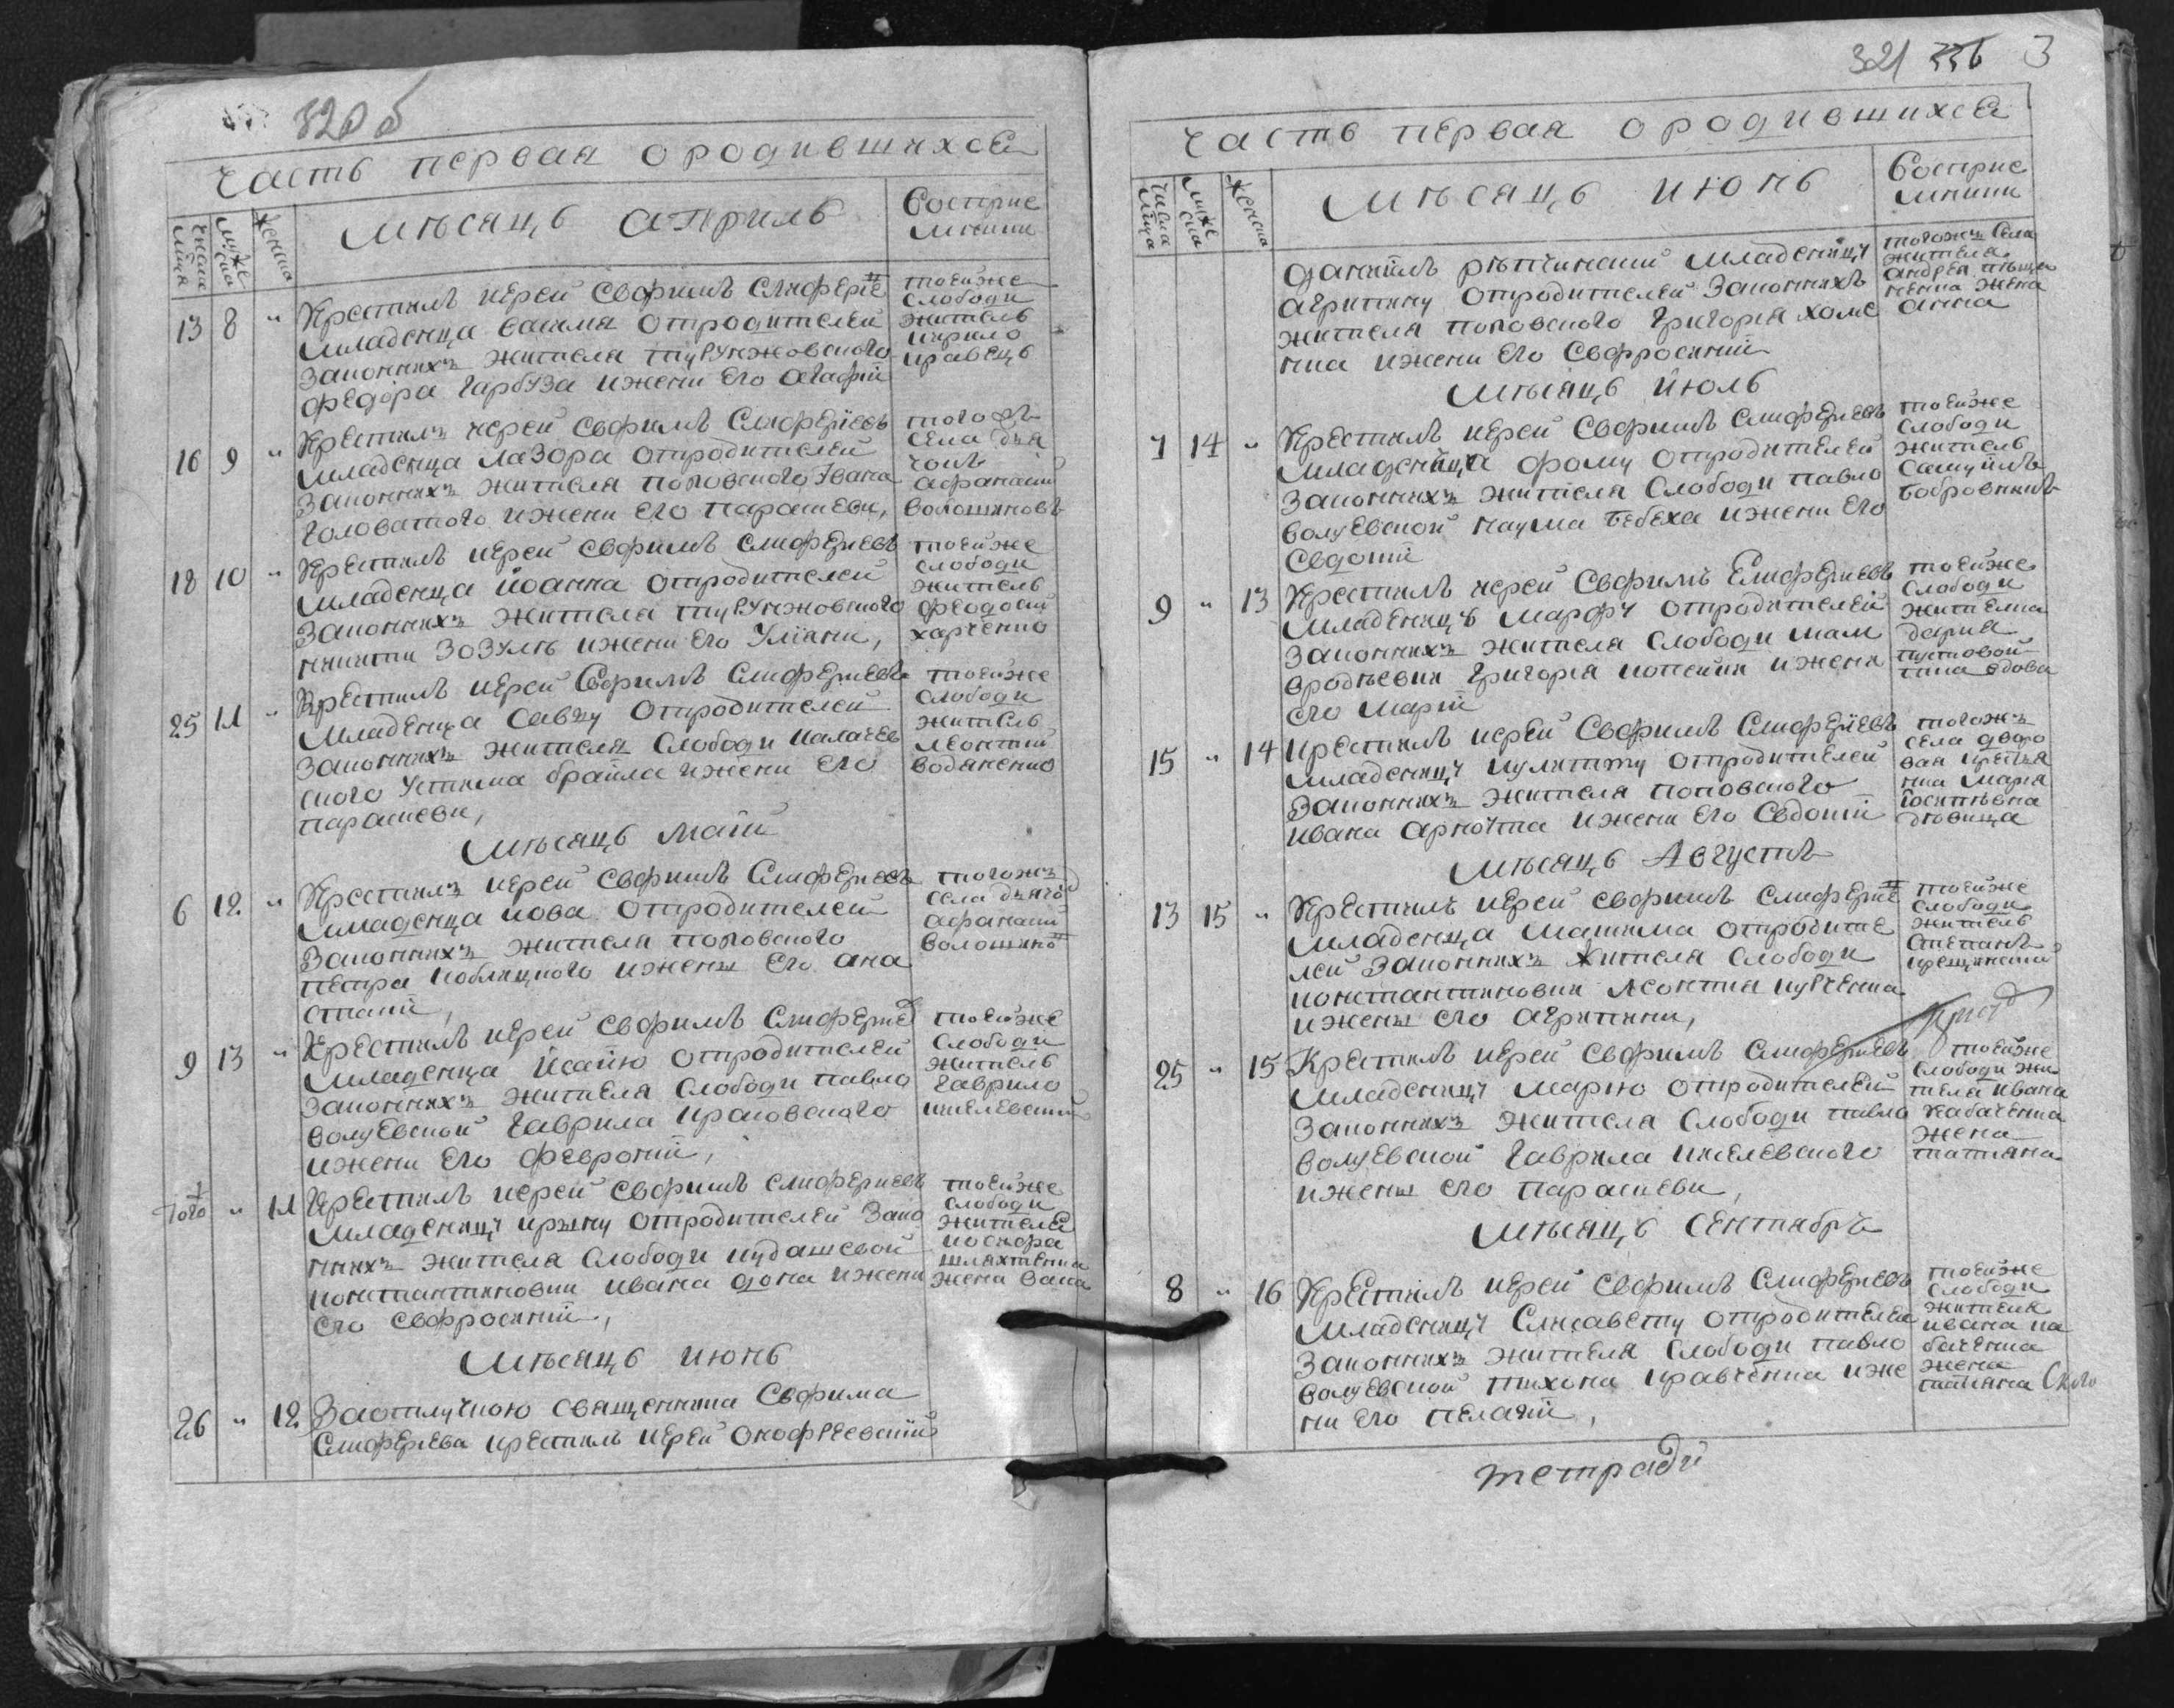 320 б
Часть первая ородившихся
числа мѣца
мужеска
женска
мѣсяцъ априль
Восприемники
13 8 " Крестилъ иерей Евфимъ Елиферие
младенца василя отродителей
законнихъ жителя турунжовского
федора гарбуза ижени его агафіи
тоейже
слободи
житель
кирило
кравецъ
16 9 " Крестилъ иерей Евфимъ Елиферіевъ
младенца лазора отродителей
законнихъ жителя поповского Івана
головатого ижени его параскеви,
тогожъ
села дья
чокъ
афанасий
волошиновъ
18 10 " Крестилъ иерей Евфимъ Елифериевъ
младенца іоанна отродителей
законнихъ жителя турунжовского
микити зозулѣ ижени его Уліяни,
тоейже
слободи
житель
феодосий
харченко
25 11 " Крестилъ иерей Евфимъ Елифериевъ
младенца савву отродителей
законнихъ жителя слободи калачев
ского Устима браила ижени его
параскеви,
тоейже
слободи
житель
леонтий
водяненко
мѣсяцъ май
6 12 " Крестилъ иерей Евфимъ Елифериевъ
младенца иова отродителей
законнихъ жителя поповского
петра кобляцкого ижены его ана
стасіи,
тогожъ
села дьячо
афанасий
волошино
9 13 " Крестилъ иерей Евфимъ Елиферие
младенца Исаию отродителей
законнихъ жителя слободи павло
волуевской гаврила краковского
ижени его февроніи,
тоейже
слободи
житель
гаврило
киселевский
тогo " 11 Крестилъ иерей Евфимъ Елифериевъ
младеницу ирину отродителей зако
ннихъ жителя слободи кудашевой
константиновки ивана дона ижени
его евфросиніи,
тоейже
слободи
жителя
никифора
шляхтенка
жена васи
мѣсяцъ июнь
26 " 12 Заотлучкою священника Евфима
Елифериева крестилъ иерей онофреевский
321 336 3
Часть первая ородившихся
числа мѣца
мужеска
женска
мѣсяцъ июнь
Восприемники
даниилъ рѣпчинский младеницу
агрипину отродителей законнихъ
жителя поповского григория хоме
нка ижени его Евфросиніи
тогожъ села
жителя
андрея
жена
анна
мѣсяцъ июль
7 14 " Крестилъ иерей Евфимъ Елифериевъ
младеница фому отродителей
законнихъ жителя слободи павло
волуевской наума бебеха ижени его
Евдокіи
тоейже
слободи
житель
самуилъ
бобровникъ
9 " 13 Крестилъ иерей Евфимъ Елифериевъ
младеницъ марфу отродителей
законнихъ жителя слободи мам
вродѣевки григория копейки ижени
его маріи
тоейже
слободи
жителка
дария
пустовой
тка вдова
15 " 14 Крестилъ иерей Евфимъ Елиферіевъ
младеницу иулитту отродителей
законнихъ жителя поповского
ивана арнаута ижени его Евдокіи
тогожъ
села дворо
вая крестья
нка мария
іосипѣвна
дѣвица
мѣсяцъ Августъ
13 15 " Крестилъ иерей Евфимъ Елиферие
младенца макима отродите
лей законнихъ жителя слободи
константиновки леонтия кувченка
ижены его агрипини,
тоейже
слободи
житель
степанъ
крещинский
25 " 15 Крестилъ иерей Евфимъ Елифериевъ
младеницу марию отродителей
законнихъ жителя слободи павло
волуевской гаврила киселевского
ижены его параскеви,
тоейже
слободи жи
теля ивана
кабаченка
жена
татияна
мѣсяцъ сентябръ
8 " 16 Крестилъ иерей Евфимъ Елифериевъ
младеницу Елисавету отродителей
законнихъ жителя слободи павло
волуевской тихона кравченка иже
ни его пелагіи,
тоейже
слободи
жителя
ивана ка
баченка
жена
татияна
тетради